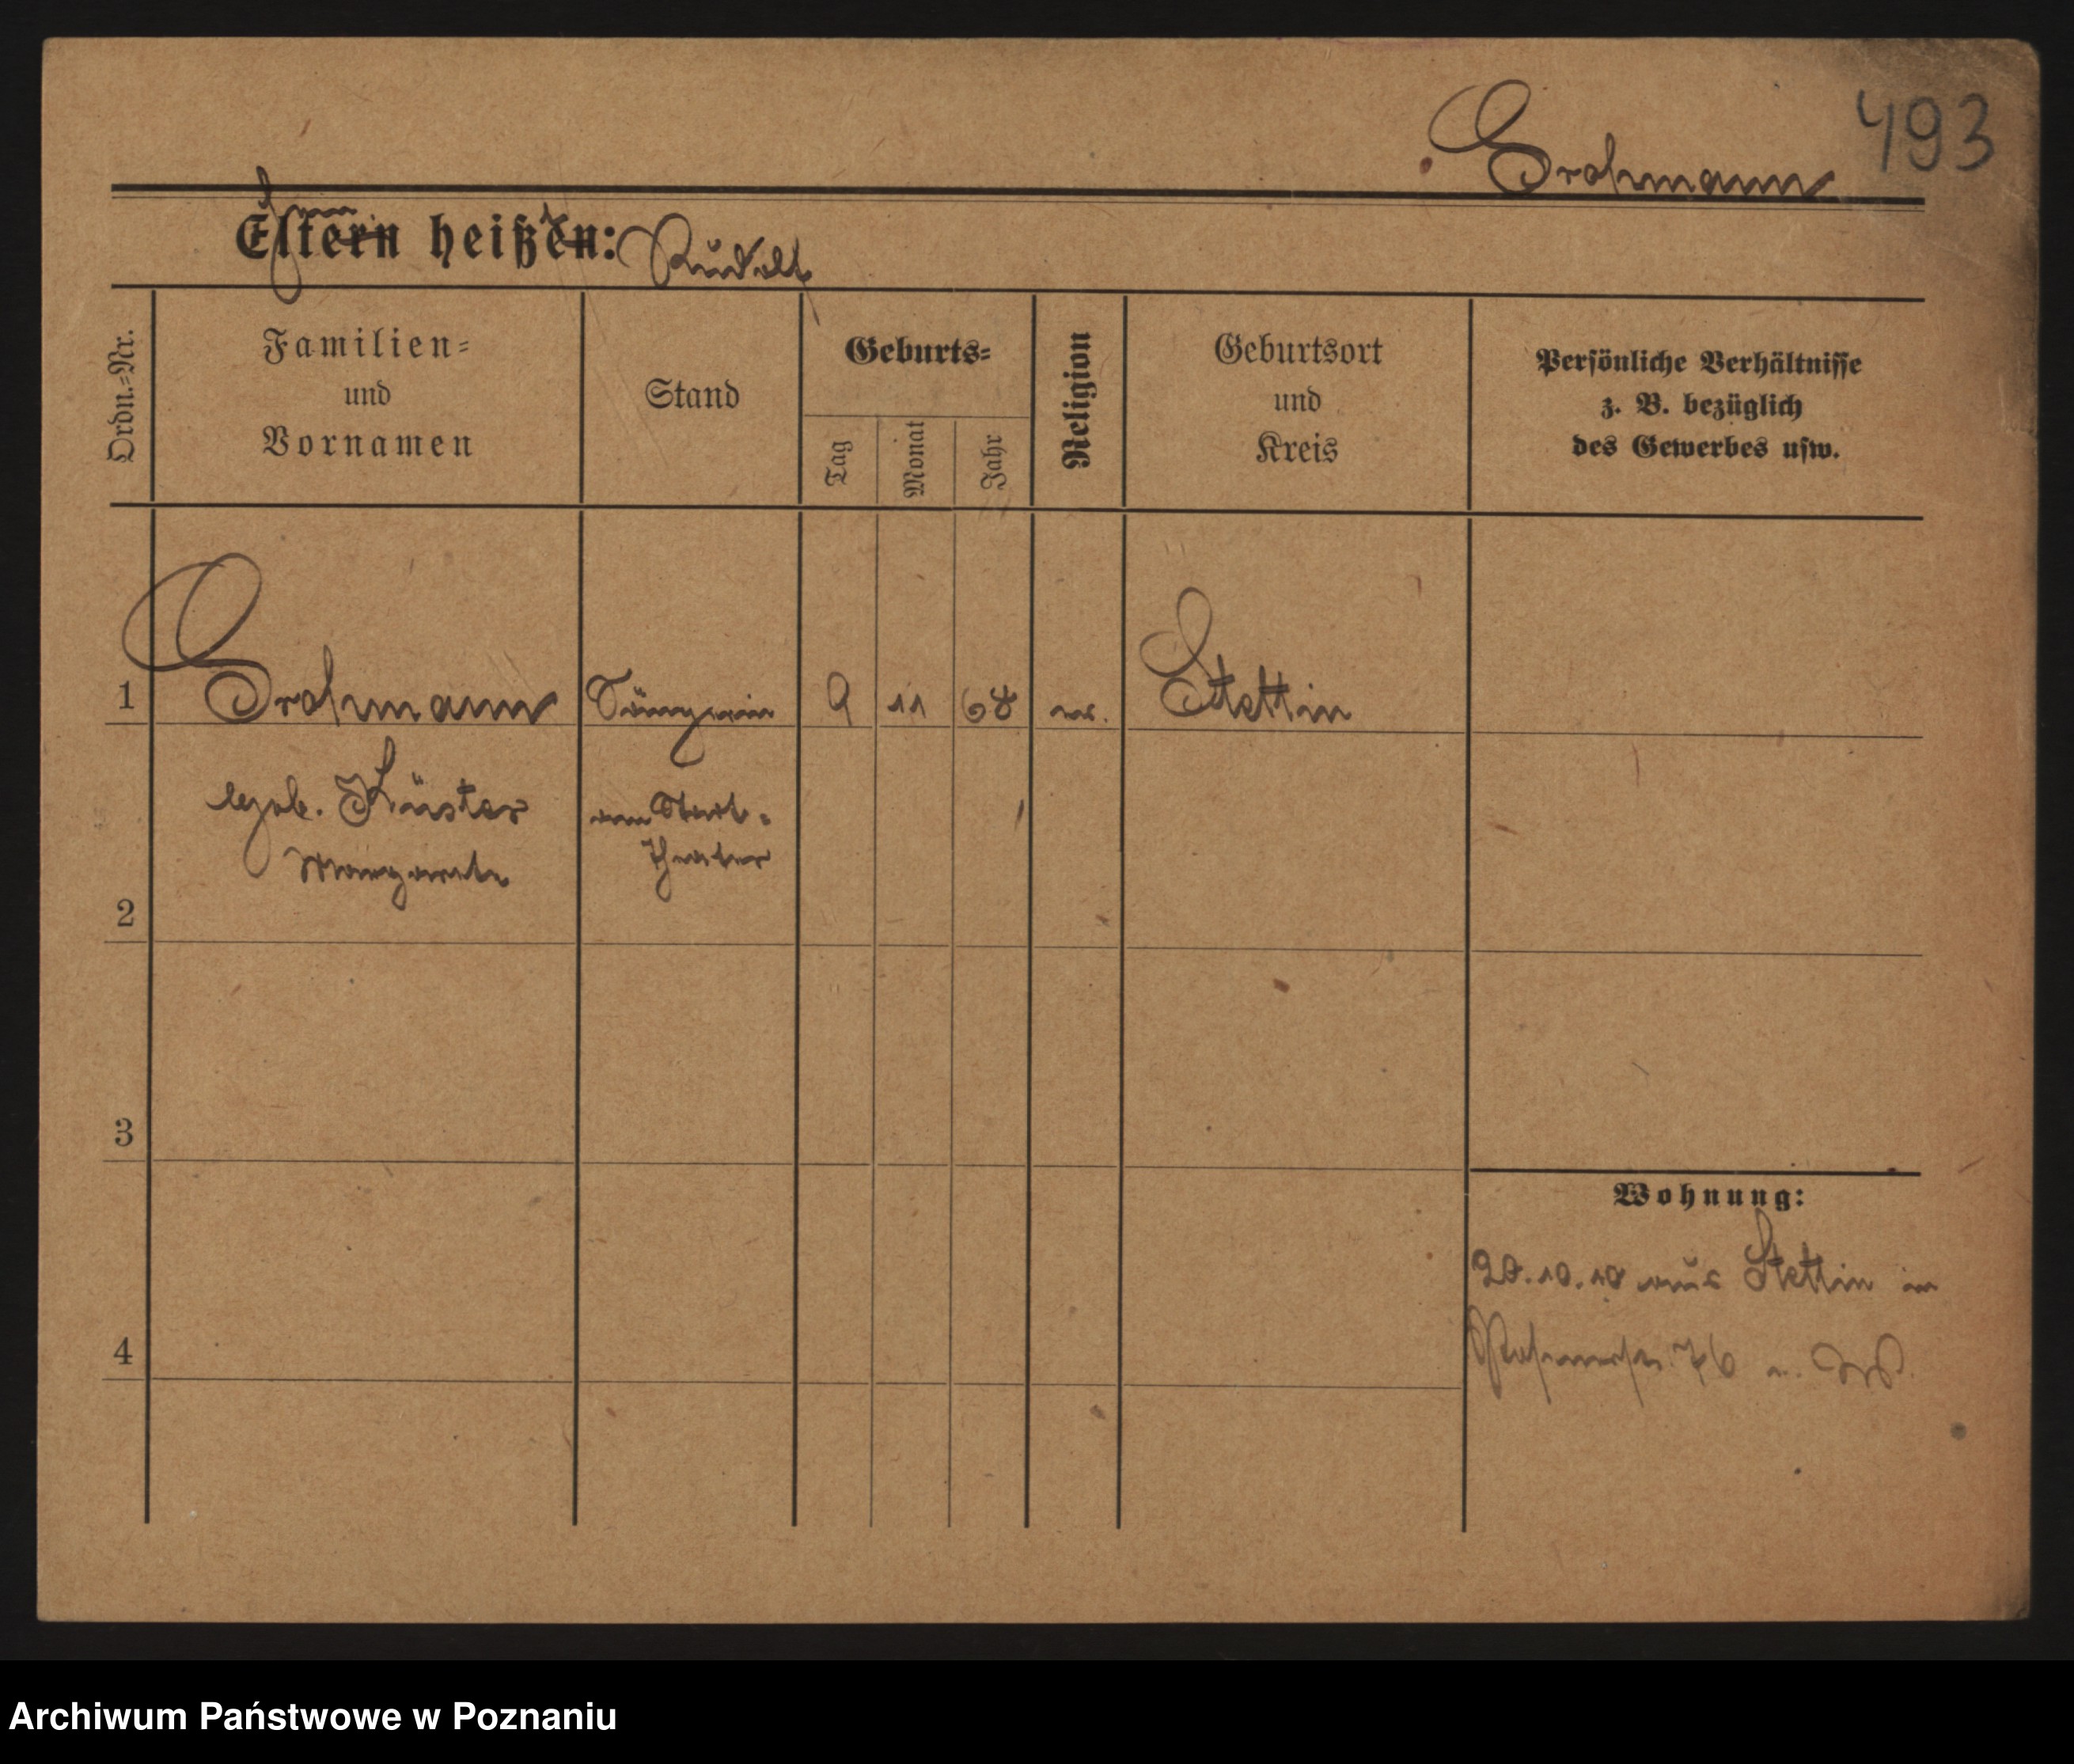 493
Grohmann
Eltern heißen: Rudolf
Ordn.-Nr.
Familien-
und
Vornamen
Stand
Geburts-
Tag
Monat
Jahr
Religion
Geburtsort
und
Kreis
Persönliche Verhältnisse
z. B. bezüglich
des Gewerbes usw.
1 Grohmann Sängerin 9 11 68 Stettin
Küster am Stadt-
Margarete Theater
2
3
Wohnung:
20.10.10 aus Stettin in
4
76
Archiwum Państwowe w Poznaniu